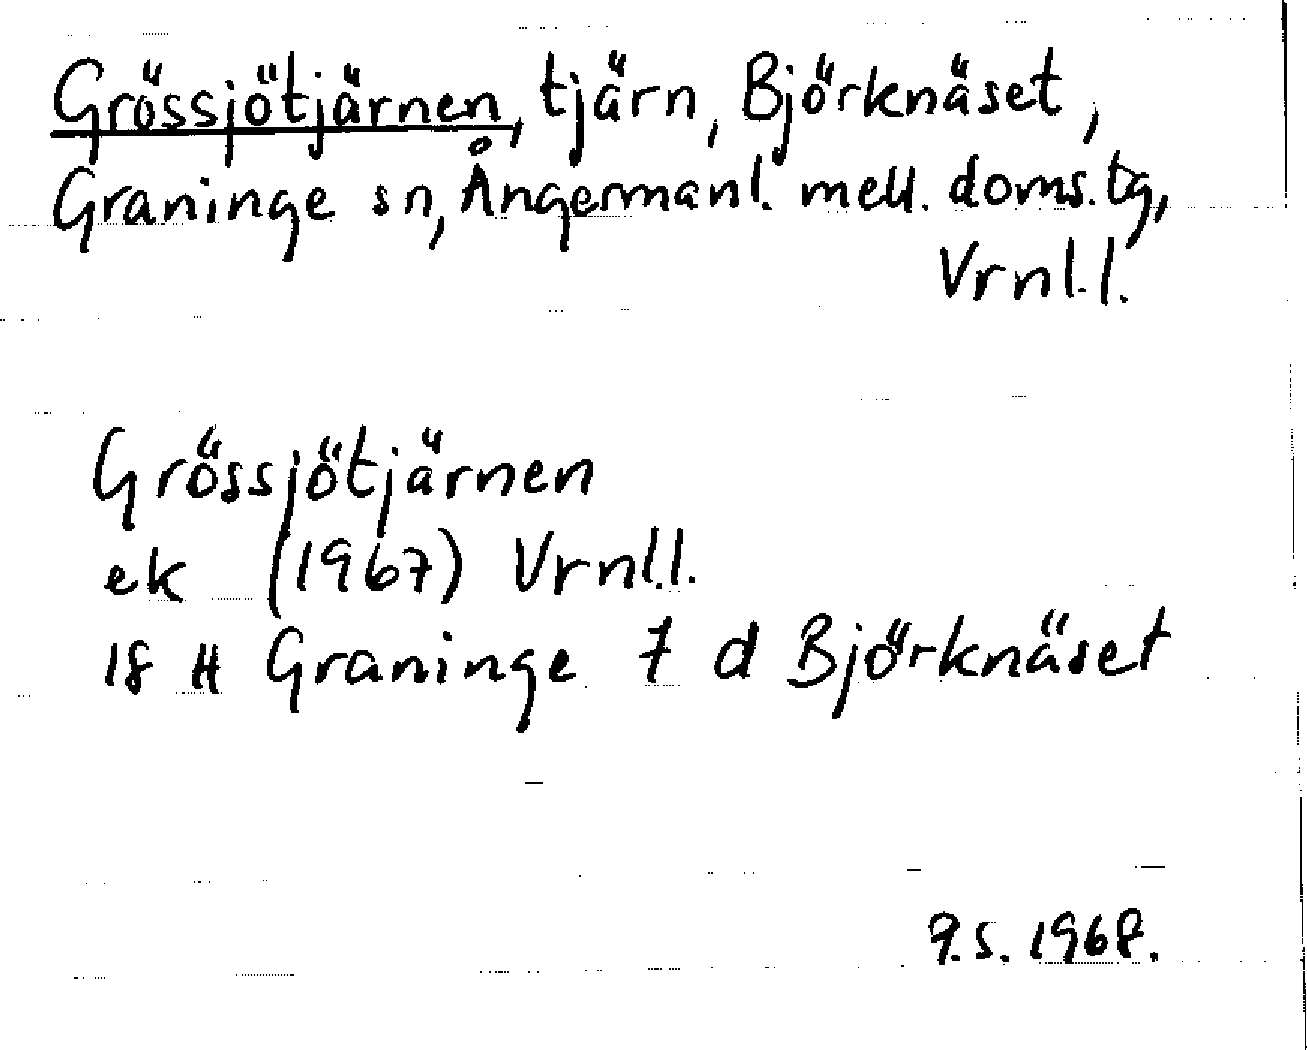 Grössjötjärnen, tjärn, Björknäset,
Graninge sn, Ångermanl. mell. doms.tg,
Vrnl.l.
Grössjötjärnen
ek (1967) Vrnl.l.
18 H Graninge 7 d Björknäset
P.S. 1968.